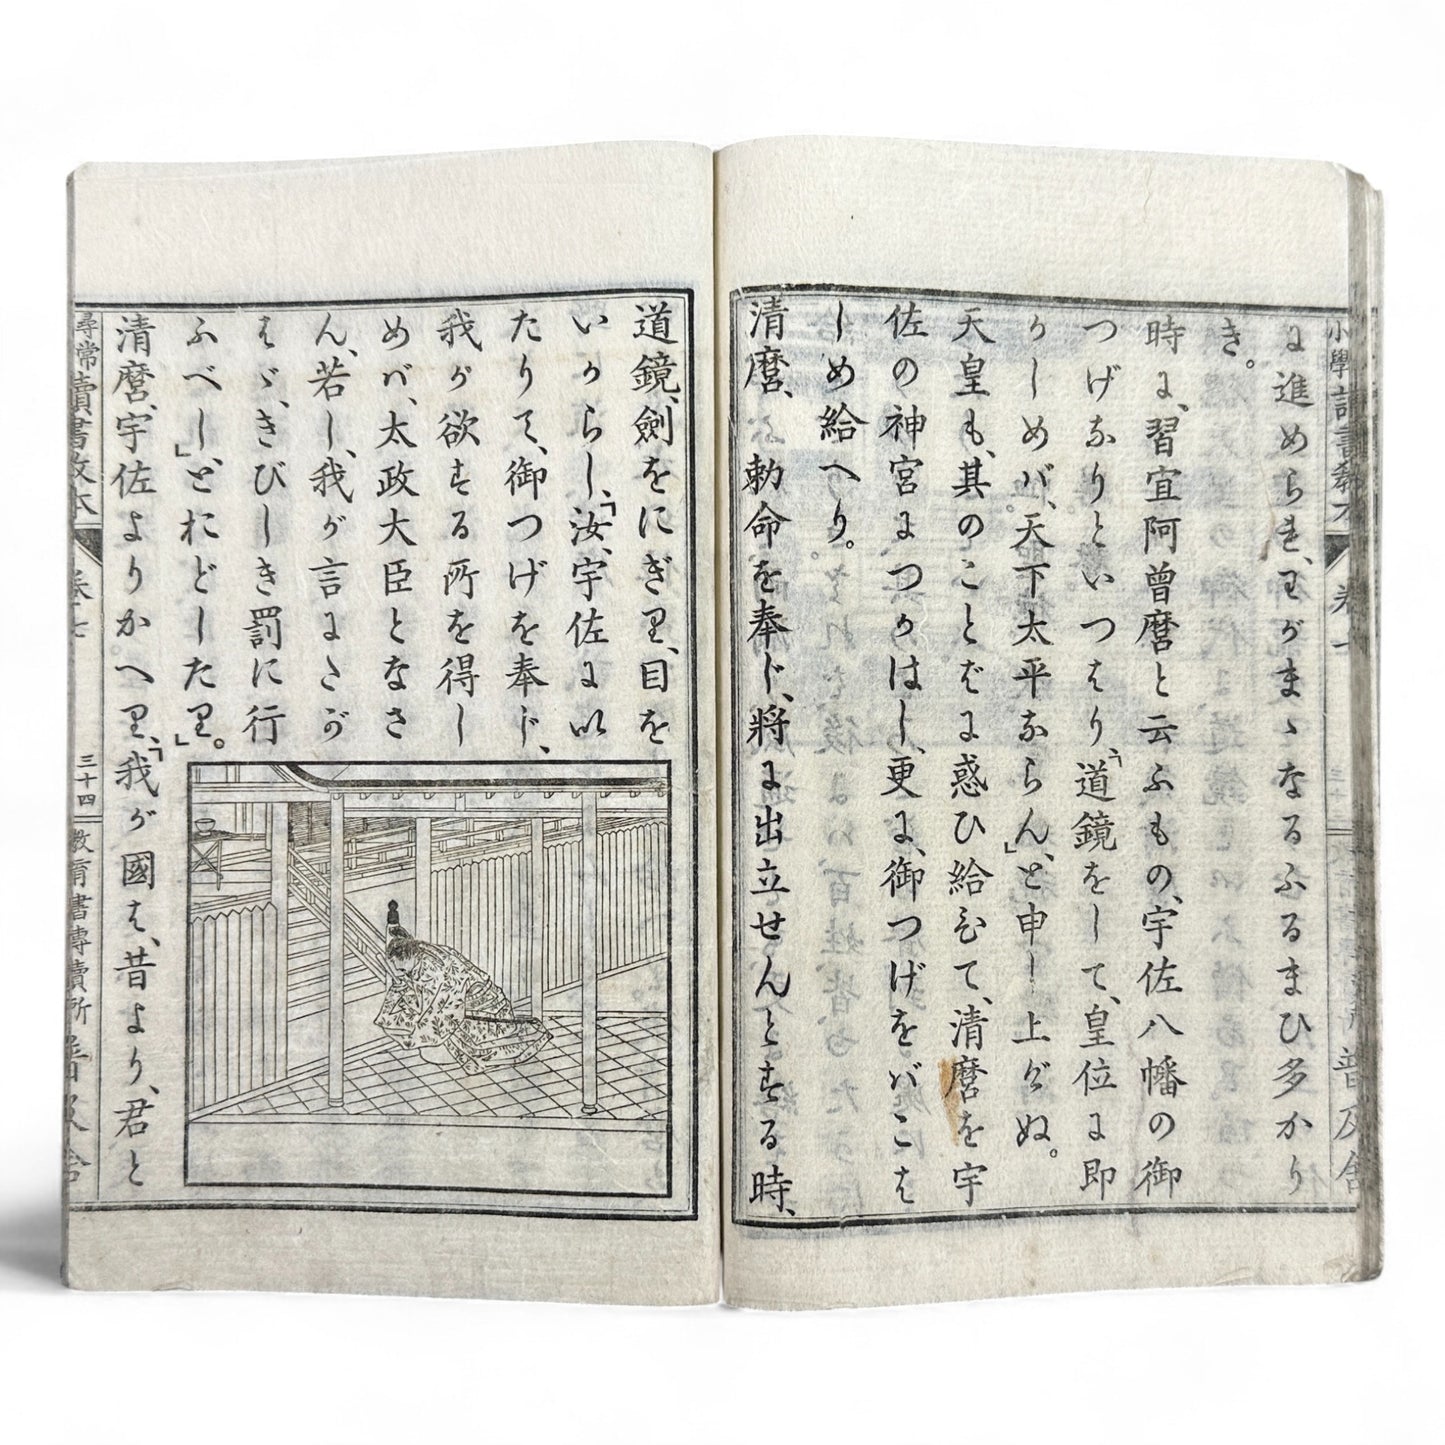 に進められ、わがまゝなるふるまひ多かり
き。
時に、習宜阿曾麿と云ふもの、宇佐八幡の御
つげなりといつはり「道鏡をして、皇位に即
かしめバ、天下太平ならん」と申し上げぬ。
天皇も、其のことばに惑ひ給ひて、清麿を宇
佐の神宮につかはし、更に、御つげをバこは
しめ給へり。
清麿、勅命を奉じ、將に出立せんとする時、
道鏡、劍をにぎり、目を
いからし、「汝、宇佐に以
たりて、御つげを奉じ、
我が欲する所を得し
めバ、太政大臣となさ
ん、若し、我が言にたが
はゞ、きびしき罰に行
ふべし」とおどしたり」。
清麿、宇佐よりかへり、「我が國は、昔より、君と
尋常讀書教本
卷七
三十四
教育書專賣所
普及舍